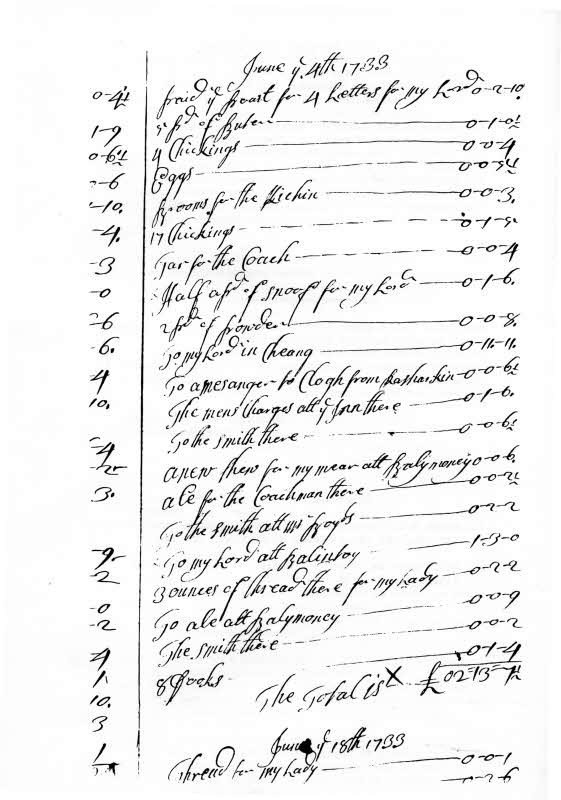 June ye 4th 1733
0-4½ paid ye Poast for 4 Letters for my Lord 0-2-10
5 pd of Buter 0-1-0½
1-9 4 Chickings 0-0-4
0-6½ Eggs 0-0-5½
-6 Brooms for the Kichin 0-0-3.
-10. 17 Chickings 0-1-5
-4. Tar for the Coach 0-0-4
-3 Half a pd of snoof for my Lord 0-1-6.
-0 2 pd of powder 0-0-8.
-6 To my Lord in Cheang 0-11-11.
-6. To a mesanger to Clogh from Rasharkin 0-0-6½
4 The mens Charges att ye Inn there 0-1-6.
10. To the smith there 0-0-6½
-4 a new shew for my mear att Balymoney 0-0-6½
-2- ale for the Coachman there 0-0-2½
3. To the smith att Mr Boyds 0-2-2
-9- To my Lord att Balintoy 1-3-0
-2 3 ounces of thread there for my Lady 0-2-2
-0 To ale att Balymoney 0-0-9
-2 The smith there 0-0-2
4 8 Cocks 0-1-4
1 The Total is £02-13-
10.
3
June ye 18th 1733
1 Thread for my Lady 0-0-1
0-2-6